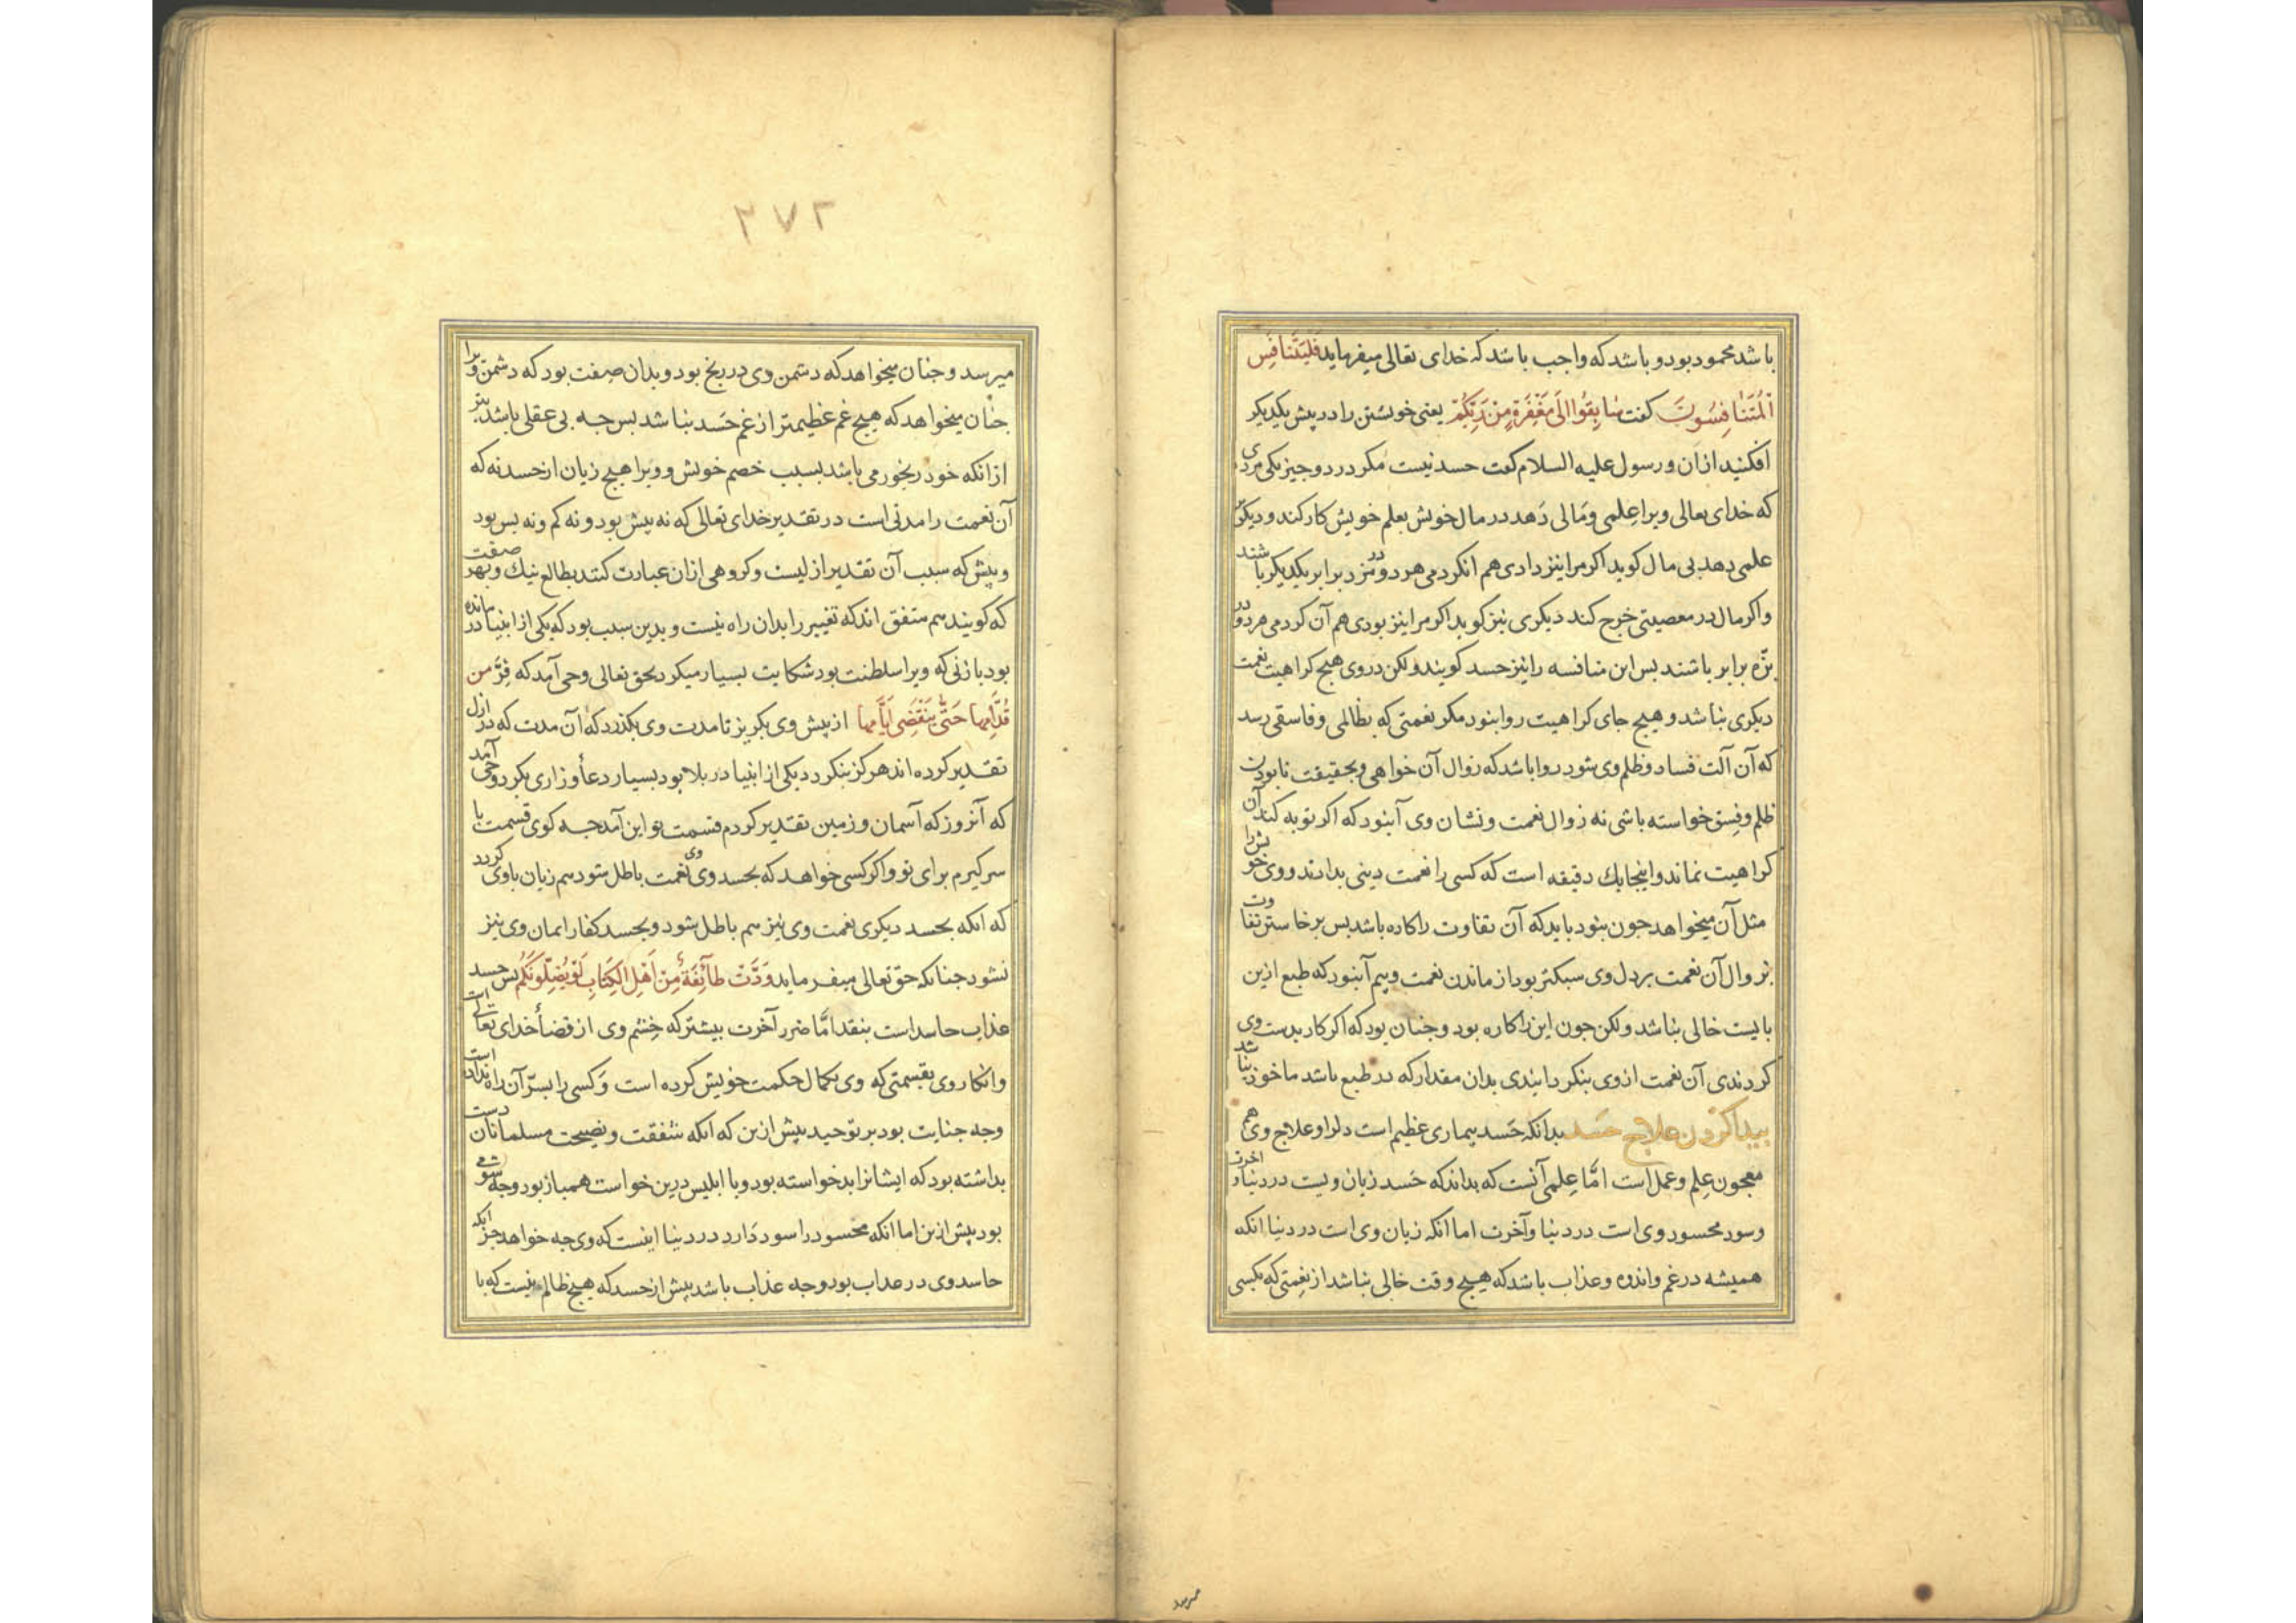 باشد محمود بود و باشد که واجب باشد که خدای تعالی میفرماید فَلْیَتَنافَسِ
الْمُتَنافِسُونَ کفت سابِقُوا اِلَی مَغْفِرَةٍ مِنْ رَبِّکُمْ یعنی خویشتن را در پیش یکدیکر
افکنید ازان و رسول علیه السلام کفت حسد نیست مکر در دو چیز یکی مردی
که خدای تعالی ویرا عِلمی و مَالی دَهد در مال خویش بعلم خویش کار کند و دیکر
علمی دهد بی مال کوید اکر مرا نیز دادی هم انکردمی هر دو در بزه برابر یکدیکر باشند
و اکر مال در معصیتی خرج کند دیکری نیز کوید اکر مرا نیز بودی هم آن کردمی هر دو در
بزه برابر باشند بس این منافسه را نیز حسد کویند ولکن در وی هیچ کراهیت نعمت
دیکری نباشد و هیچ جای کراهیت روا نبود مکر نعمتی که بظالمی و فاسقی رسد
که آن آلت فساد و ظلم وی شود روا باشد که زوال آن خواهی و بحقیقت نابودن
ظلم و فسق خواسته باشی نه زوال نعمت و نشان وی آنبود که اکر توبه کند آن
کراهیت نماند و اینجا یك دقیقه است که کسی را نعمت دینی بدادند و وی خویش را
مثل آن میخواهد جون نبود باید که آن تفاوت را کاره باشد بس برخاستن تفاوت
بزوال آن نعمت بر دل وی سبکتر بود از ماندن نعمت و بیم آنبود که طبع ازین
بایست خالی نباشد ولکن جون این را کاره بود و جنان بود که اکر کار بدست وی
کردندی آن نعمت از وی بنکردانیدی بدان مقدار که در طبع باشد ماخوذ نباشد
پیدا کردن علاج حَسَد بدانکه حَسد بیماری عظیم است دلرا و علاج وی هم
معجون عِلم و عمل است امّا عِلمی آنست که بداند که حَسد زیان ویست در دنیا و اخرت
و سود محسود وی است در دنیا و آخرت اما انکه زیان وی است در دنیا انکه
همیشه در غم و اندوه و عذاب باشد که هیچ وقت خالی نباشد از نعمتی که بکسی
میرسد
۲۷۲
میرسد و جنان میخواهد که دشمن وی در رنج بود و بدان صفت بود که دشمن ویرا
جنان میخواهد که هیچ غم عظیمتر از غم حَسد نباشد بس جه بی عقلی باشد بتر
ازانکه خود رنجور می باشد بسبب خصم خویش و ویرا هیچ زیان از حسد نه که
آن نعمت را مدتی است در تقدیر خدای تعالی که نه پیش بود و نه کم و نه بس بود
و پیش که سبب آن تقدیر ازلیست و کروهی ازان عبارت کنند بطالع نیك و بهر صفت
که کویند هم متفق اند که تغییر را بدان راه نیست و بدین سبب بود که یکی از انبیا درمانده
بود با زنی که ویرا سلطنت بود شکایت بسیار میکرد بحق تعالی وحی آمد که فِرَّ من
قُدّامِها حَتّی یَنْقَضِیَ اَیّامُها از پیش وی بکریز تا مدت وی بکذرد که آن مدت که در ازل
تقدیر کرده اند هرکز بنکردد یکی از انبیا در بلا بود بسیار دعا و زاری بکرد وحی آمد
که آنروز که آسمان و زمین تقدیر کردم قسمت تو این آمد جه کوی قسمت با
سر کیرم برای تو و اکر کسی خواهد که بحسد وی نعمت باطل شود هم زیان باوی کردد
که انکه بحسد دیکری نعمت وی نیز هم باطل شود و بحسد کفار ایمان وی نیز
نشود جنانکه حق تعالی میفرماید وَدَّتْ طائِفَةٌ مِنْ اَهْلِ الْکِتابِ لَوْ یُضِلُّونَکُمْ بس حسد
عذاب حاسد است بنقد امّا ضرر آخرت بیشتر که خشم وی از قضأ خدای تعالی است
و انکار وی بقسمتی که وی بکمال حکمت خویش کرده است و کسی را بسرّ آن راه نداده است
وجه جنایت بود بر توحید بیش ازین که انکه شفقت و نصیحت مسلمانان دست
بداشته بود که ایشانرا بد خواسته بود و با ابلیس درین خواست همباز بود وجه شومی
بود بیش ازین اما انکه محسود را سود دارد در دنیا اینست که وی جه خواهد جز انکه
حاسد وی در عذاب بود وجه عذاب باشد بیش از حسد که هیچ ظالم نیست که با